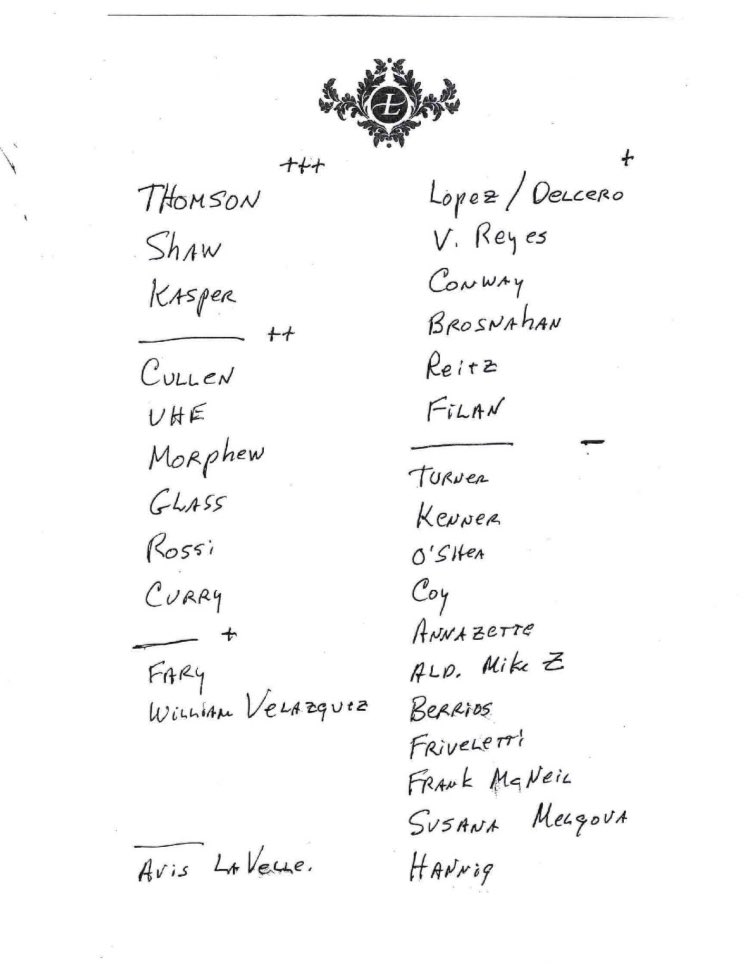 L
+++
THOMSON
SHAW
KASPER
++
CULLEN
UHE
MORPHEW
GLASS
ROSSI
CURRY
+
FARY
WILLIAM VELAZQUEZ
AVIS LAVELLE.
+
LOPEZ / DELCERO
V. Reyes
CONWAY
BROSNAHAN
REITZ
FILAN
—
TURNER
KENNER
O'SHEA
COY
ANNAZETTE
ALD. Mike Z
BERRIOS
FRIVELETTI
FRANK McNEIL
SUSANA
HANNIG